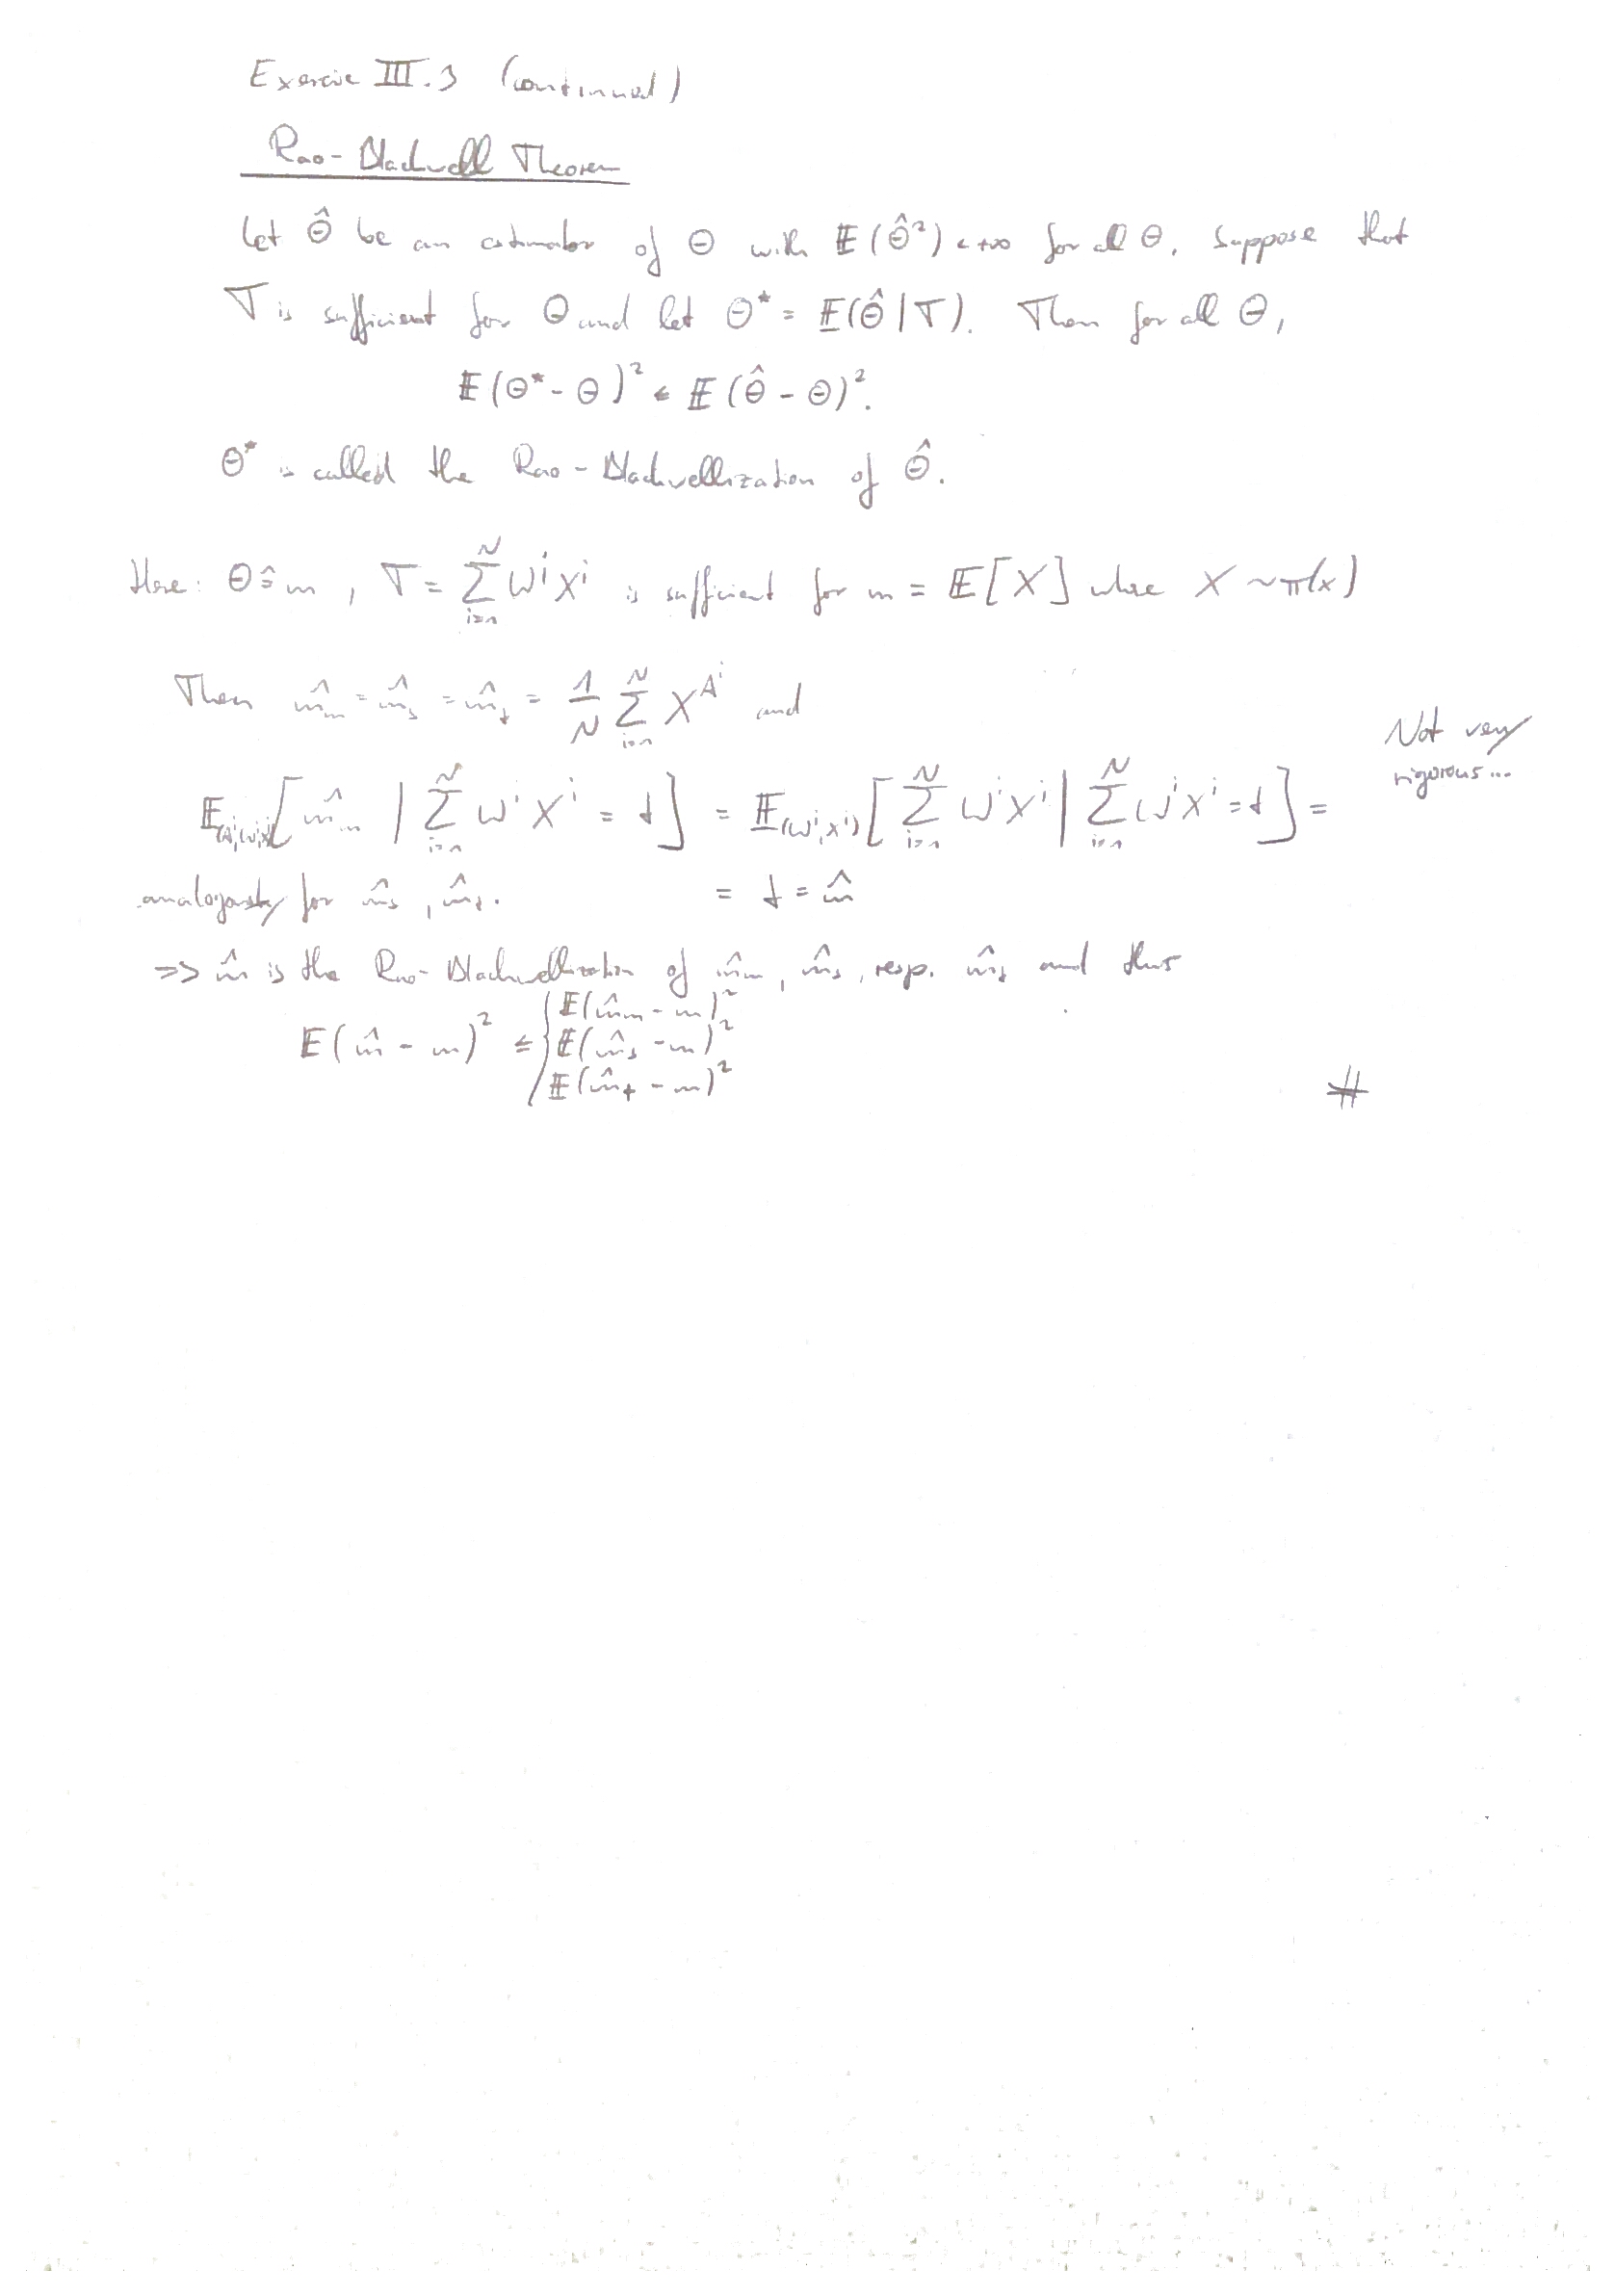 Exercise III.3 (continued)
Rao-Blackwell Theorem
Let θ̂ be an estimator of θ with 𝔼(θ̂²) < +∞ for all θ. Suppose that
T is sufficient for θ and let θ* = 𝔼(θ̂ | T). Then for all θ,
𝔼(θ* - θ)² ≤ 𝔼(θ̂ - θ)².
θ* is called the Rao-Blackwellization of θ̂.
Here: θ ≙ m, T = ∑_{i=1}^N W^i X^i is sufficient for m = 𝔼[X] where X ~ π(x)
Then m̂_m = m̂_s = m̂_t = 1/N ∑_{i=1}^N X^{A^i} and
Not very
rigorous...
𝔼_{(A^i,W^i,X^i)}[m̂_m | ∑_{i=1}^N W^i X^i = t] = 𝔼_{(W^i,X^i)}[∑_{i=1}^N W^i X^i | ∑_{i=1}^N W^i X^i = t] =
analogously for m̂_s, m̂_t. = t = m̂
=> m̂ is the Rao-Blackwellization of m̂_m, m̂_s, resp. m̂_t and thus
𝔼(m̂ - m)² ≤ { 𝔼(m̂_m - m)²
𝔼(m̂_s - m)²
𝔼(m̂_t - m)²
#